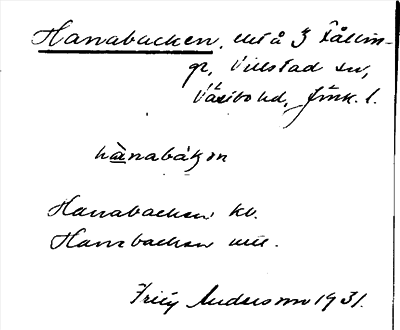 Hanabacken, del å Fållin-
ge, Villstad sn,
Västbo hd, Jönk. l.
hànabákən
Hanabacken kb.
Hanabacken
Fritz Anderson 1931.